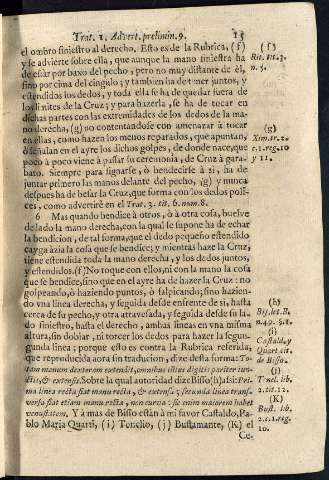 Trat. 1. Advert. prelimin. 9. 15
el ombro siniestro al derecho. Esto es de la Rubrica, (f)
y se advierte sobre ella, que aunque la mano siniestra ha
de estàr por baxo del pecho, pero no muy distante de èl,
sino por cima del cingulo; y tambien ha de tener juntos, y
estendidos los dedos, y toda ella se ha de quedar fuera de
los limites de la Cruz; y para hazerla, se ha de tocar en
dichas partes con las extremidades de los dedos de la ma-
no derecha, (g) no contentandose con amenazar à tocar
en ellas, como hazen los menos reparados, que apuntan,
ò señalan en el ayre los dichos golpes, de donde nace, que
poco à poco viene à passar su ceremonia, de Cruz à gara-
bato. Siempre para signarse, ò bendecirse à si, ha de
juntar primero las manos delante del pecho, (g) y nunca
despues ha de besar la Cruz, que forma con los dedos poli-
ces, como advertirè en el Trat. 3. tit. 6. num. 8.
6 Mas quando bendice à otros, ò à otra cosa, buelve
de lado la mano derecha, con la qual se supone ha de echar
la bendicion, de tal forma, que el dedo pequeño estendido
cayga àzia la cosa que se bendice; y mientras haze la Cruz,
tiene estendida toda la mano derecha, y los dedos juntos,
y estendidos. (f) No toque con ellos, ni con la mano la cosa
que se bendice, sino que en el ayre ha de hazer la Cruz: no
golpeando, ò haziendo puntos, ò salpicando; sino hazien-
do vna linea derecha, y seguida desde enfrente de si, hasta
cerca de su pecho, y otra atravesada, y seguida desde su la-
do siniestro, hasta el derecho, ambas lineas en vna misma
altura, sin doblar, ni torcer los dedos para hazer la segun-
gunda linea; porque esto es contra la Rubrica referida,
que reproducida aora sin traducion, dize desta forma: To-
tam manum dexteram extendit, omnibus istius digitis pariter iun-
ctis, & extensis. Sobre la qual autoridad dize Bisso (h) assi: Pri-
ma linea recta fiat manu recta, & extensa; secunda linea trans-
versa fiat etiam manu recta, non curva: sic enim maiorem habet
venustatem. Y à mas de Bisso estàn à mi favor Castaldo, Pa-
blo Maria Quarti, (i) Tonelio, (j) Bustamante, (K) el
Ce-
(f)
Rit. tit. 3.
n. 5.
(g)
y 11.
(h)
(i)
Castald. y
de Bisso.
(j)
Tonel. lib.
2. tit. 12.
(K)
Bust. lib.
10.